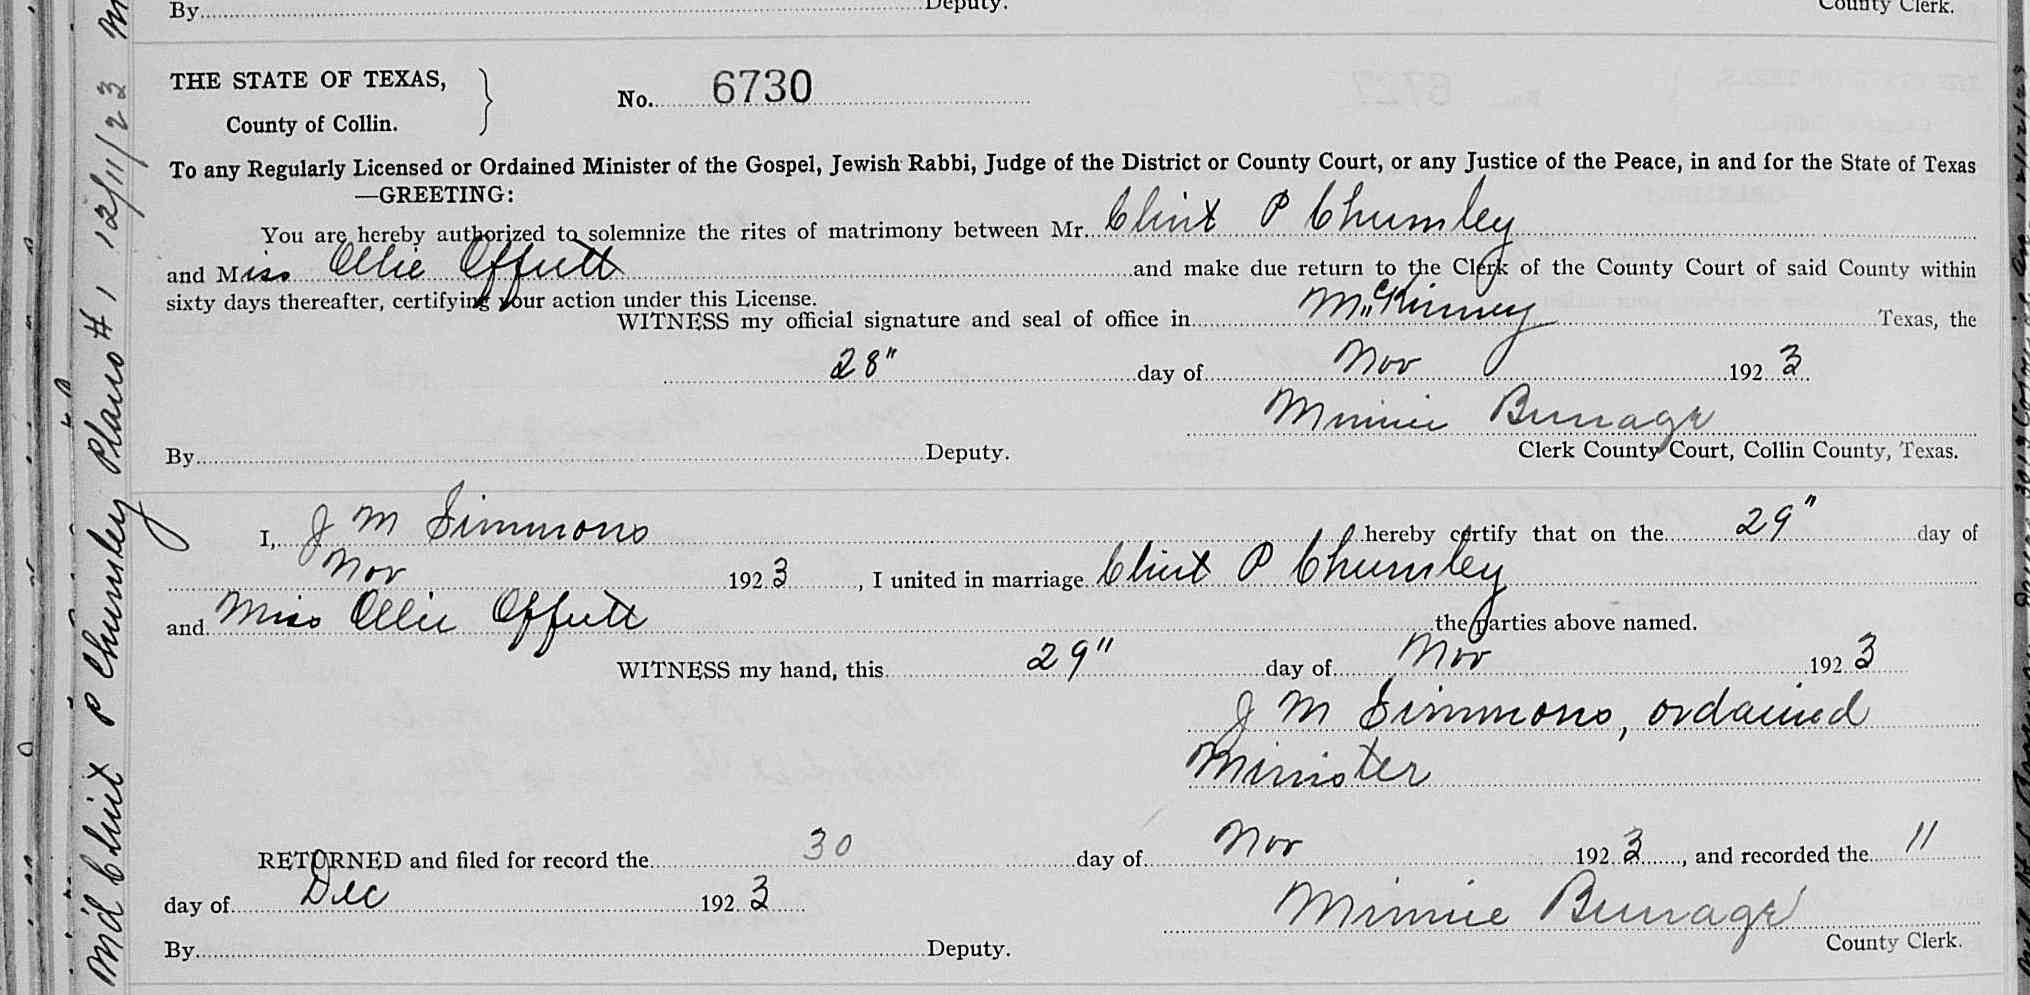 By Deputy. County Clerk.
THE STATE OF TEXAS,
County of Collin.
No. 6730
To any Regularly Licensed or Ordained Minister of the Gospel, Jewish Rabbi, Judge of the District or County Court, or any Justice of the Peace, in and for the State of Texas
—GREETING:
You are hereby authorized to solemnize the rites of matrimony between Mr. Clint P Chumley
and Miss Ollie Offutt and make due return to the Clerk of the County Court of said County within
sixty days thereafter, certifying your action under this License.
WITNESS my official signature and seal of office in McKinney Texas, the
28" day of Nov 1923
Minnie
By Deputy. Clerk County Court, Collin County, Texas.
I, J M Simmons hereby certify that on the 29" day of
Nov 1923, I united in marriage Clint P Chumley
and Miss Ollie Offutt the parties above named.
WITNESS my hand, this 29" day of Nov 1923
J M Simmons, ordained
Minister
RETURNED and filed for record the 30 day of Nov 1923, and recorded the 11
day of Dec 1923
Minnie
By Deputy. County Clerk.
Mld Clint P Chumley Plano #1, 12/11/23